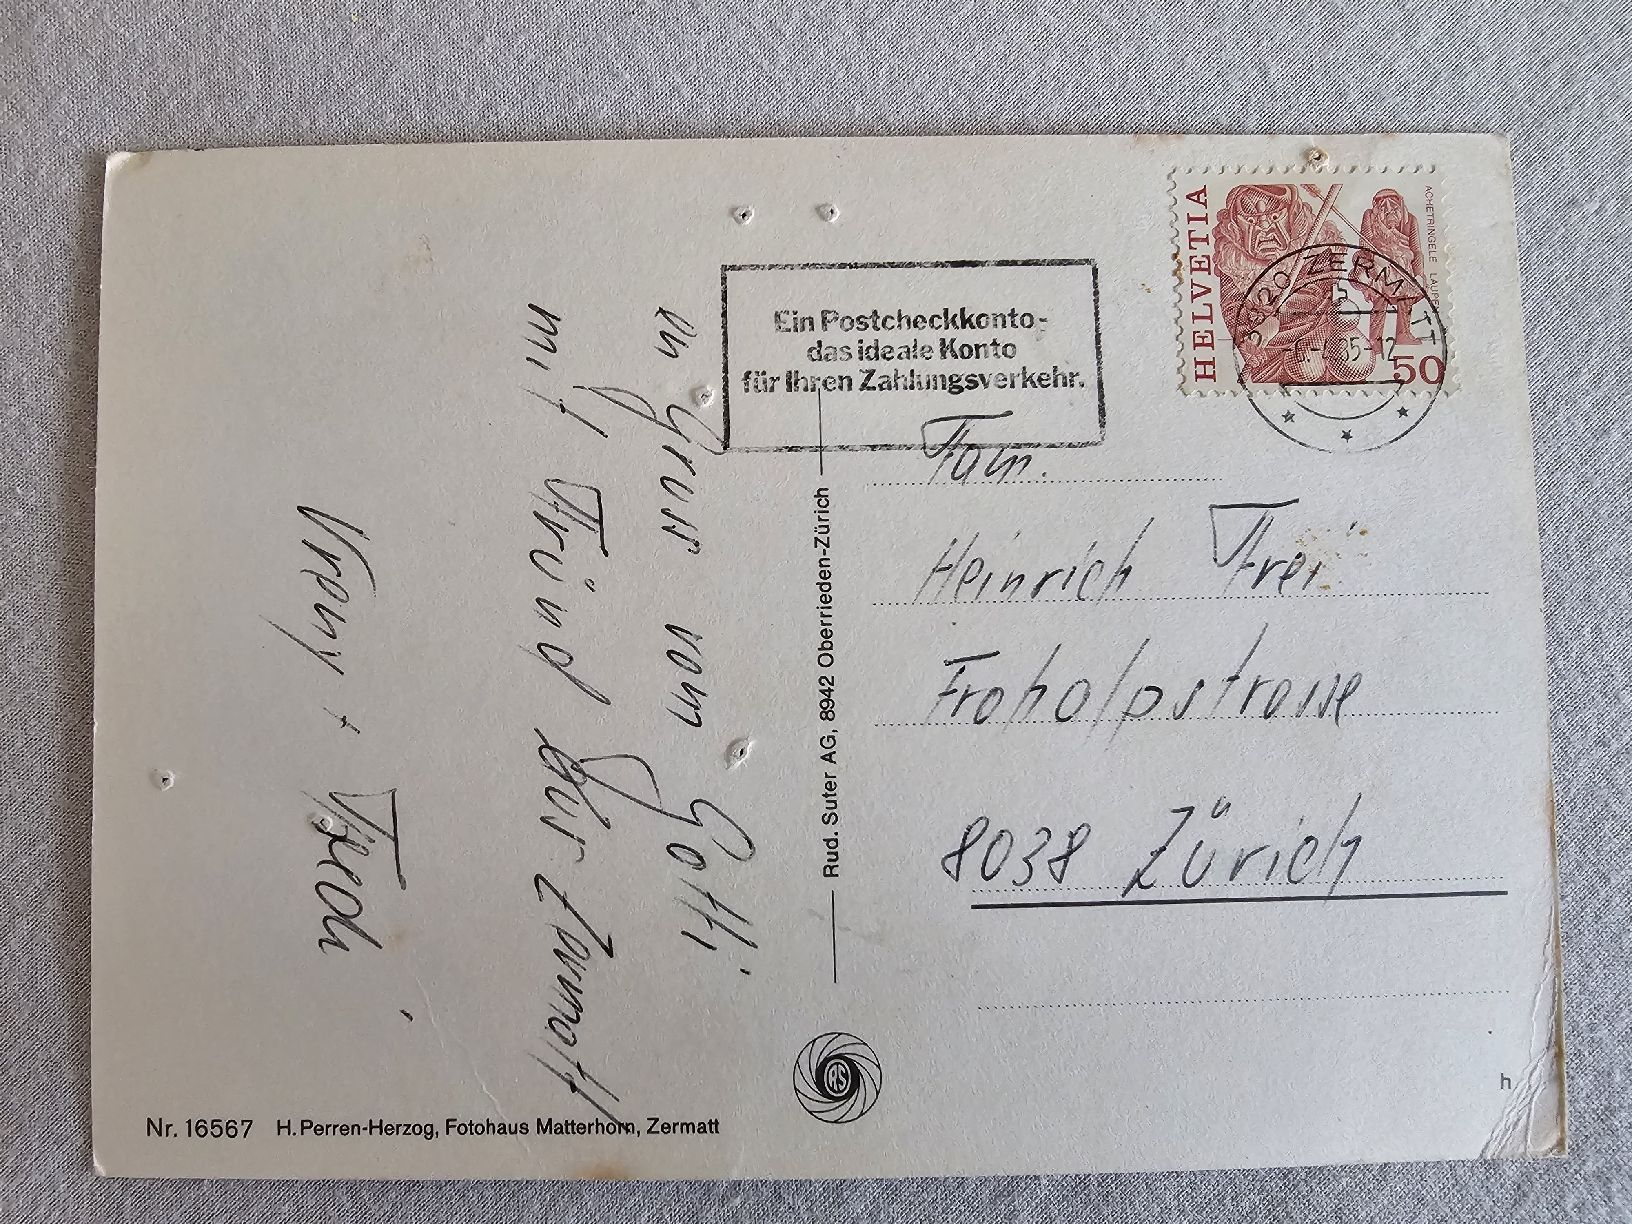 en Gruss vom Götti
mit Fründ us Zermatt
Vreny + Fredi
Nr. 16567 H. Perren-Herzog, Fotohaus Matterhorn, Zermatt
Rud. Suter AG, 8942 Oberrieden-Zürich
Ein Postcheckkonto-
das ideale Konto
für Ihren Zahlungsverkehr.
HELVETIA
ACHETRINGELE LAUPEN
50
3920 ZERMATT
Fam.
Heinrich Frei
Frohalpstrasse
8038 Zürich
h